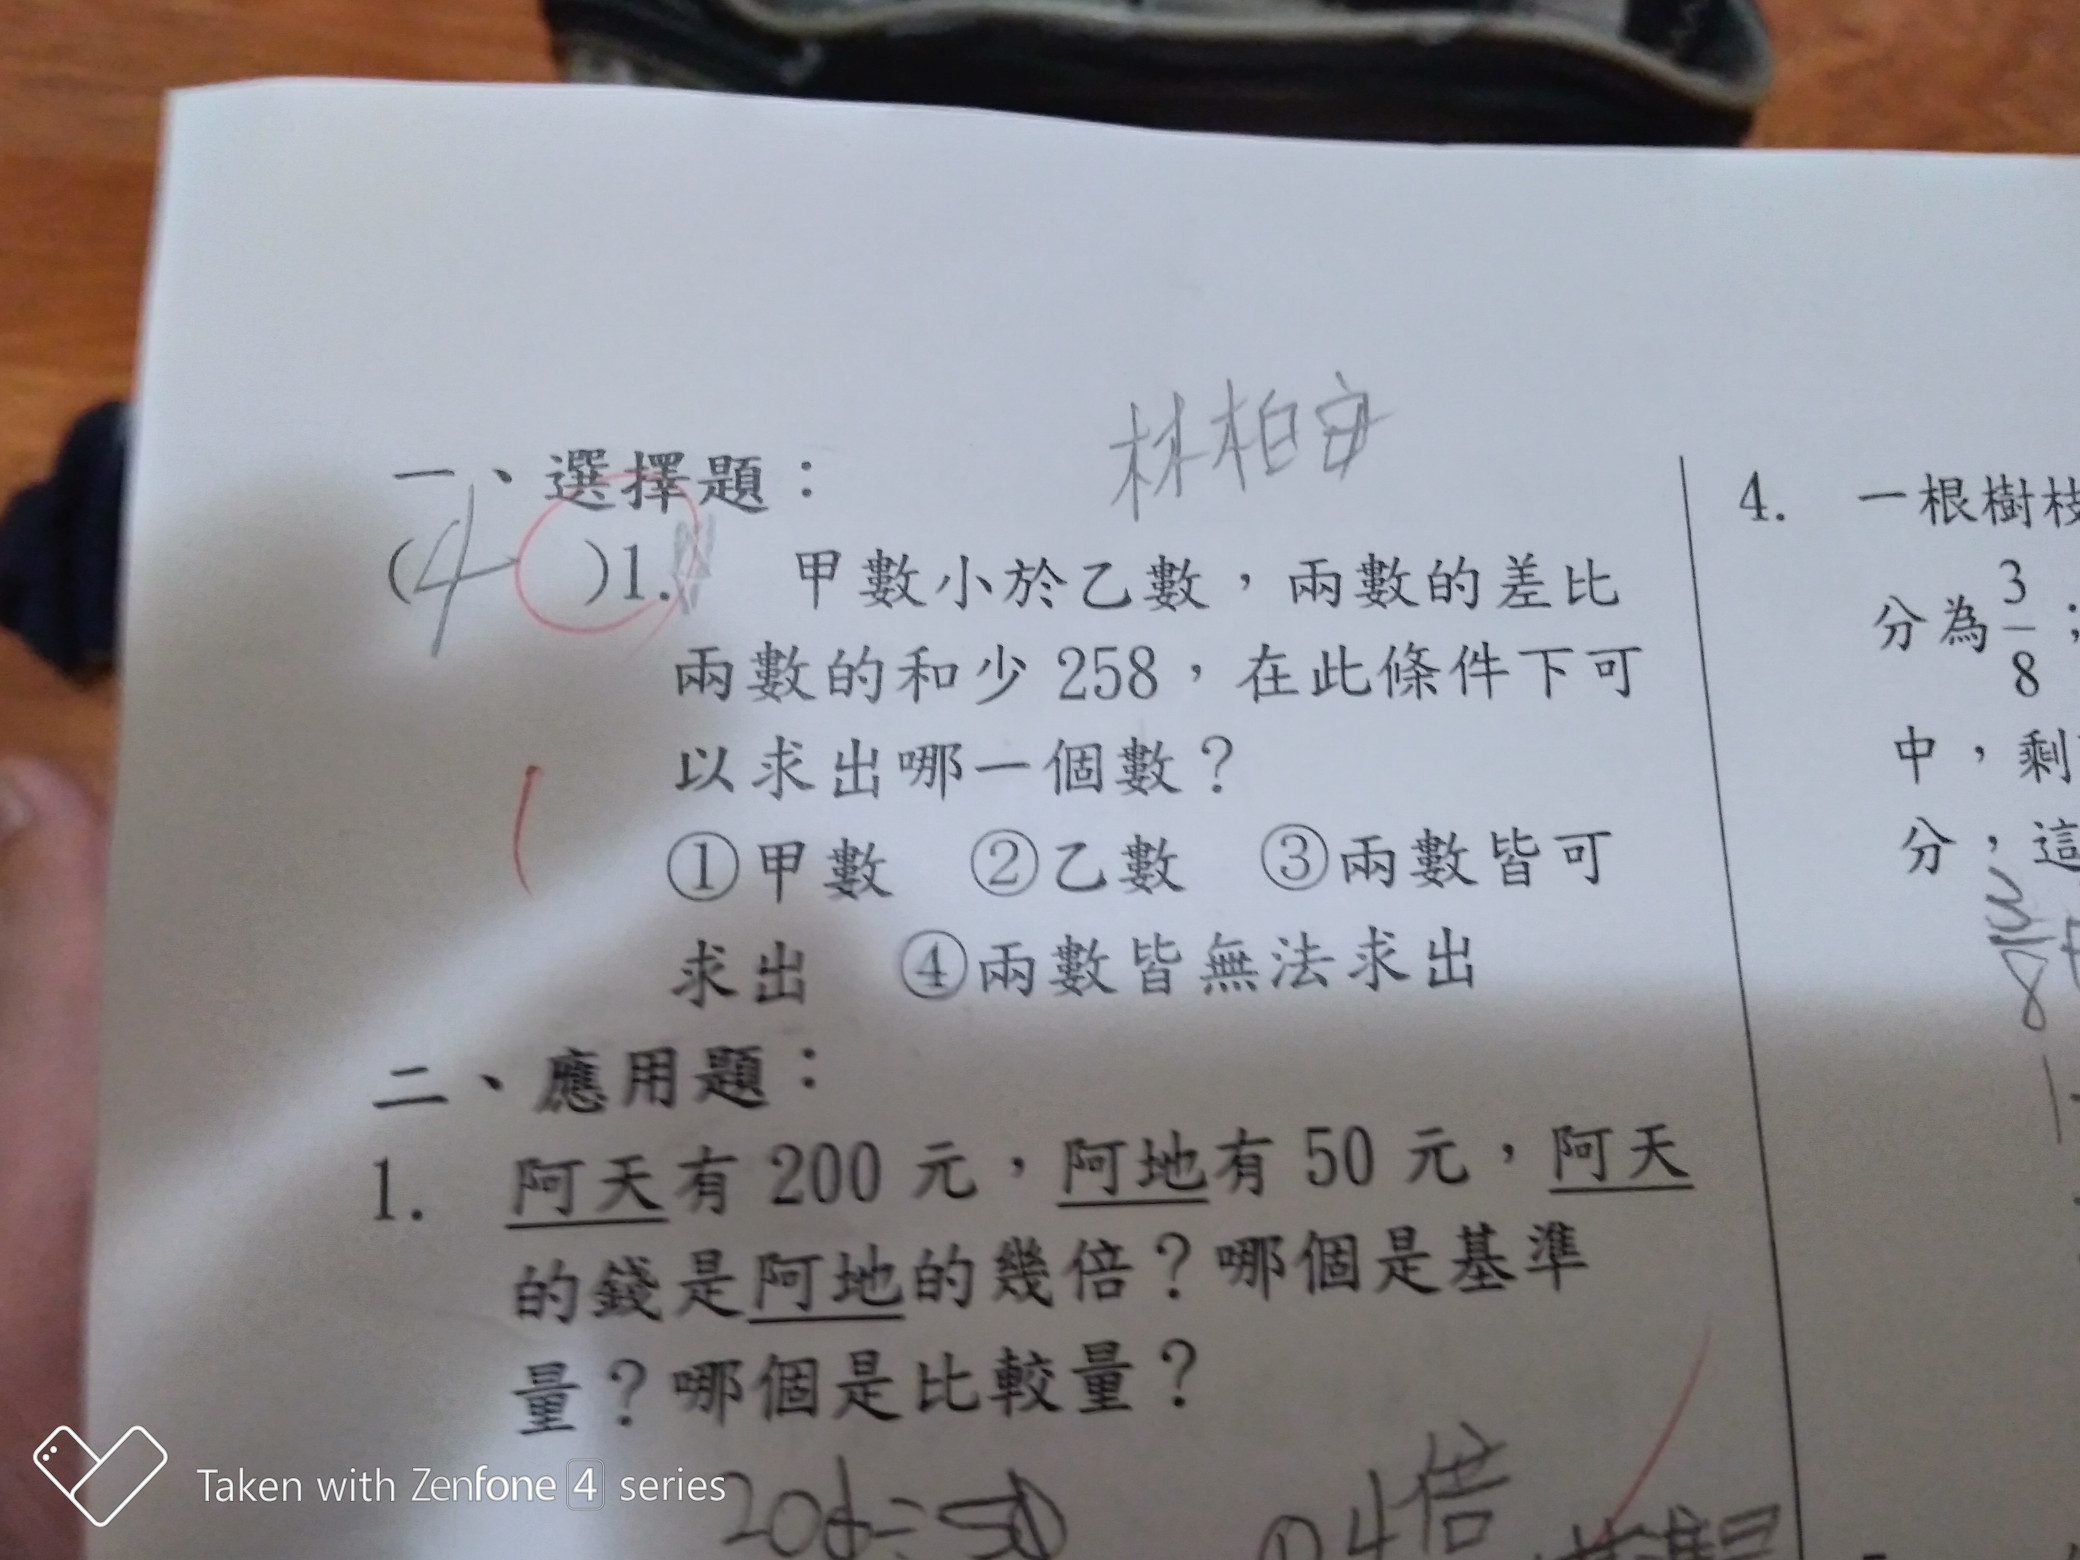 林柏安
一、選擇題：
(4)1. 甲數小於乙數，兩數的差比
兩數的和少 258，在此條件下可
以求出哪一個數？
①甲數 ②乙數 ③兩數皆可
求出 ④兩數皆無法求出
二、應用題：
1. 阿天有 200 元，阿地有 50 元，阿天
的錢是阿地的幾倍？哪個是基準
量？哪個是比較量？
4倍
4. 一根樹枝
分為3/8；
中，剩
分，這
3/8
Taken with Zenfone 4 series